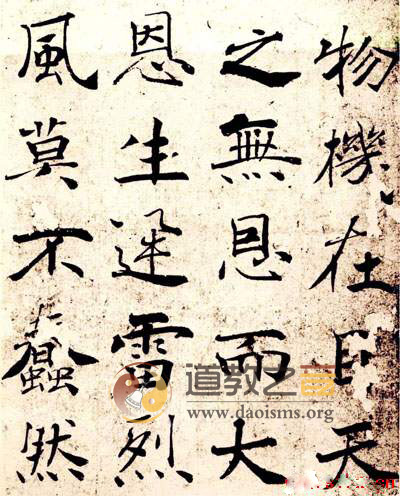 物機在目天
之無恩而大
恩生迅雷烈
風莫不蠢然
道教之音
www.daoisms.org